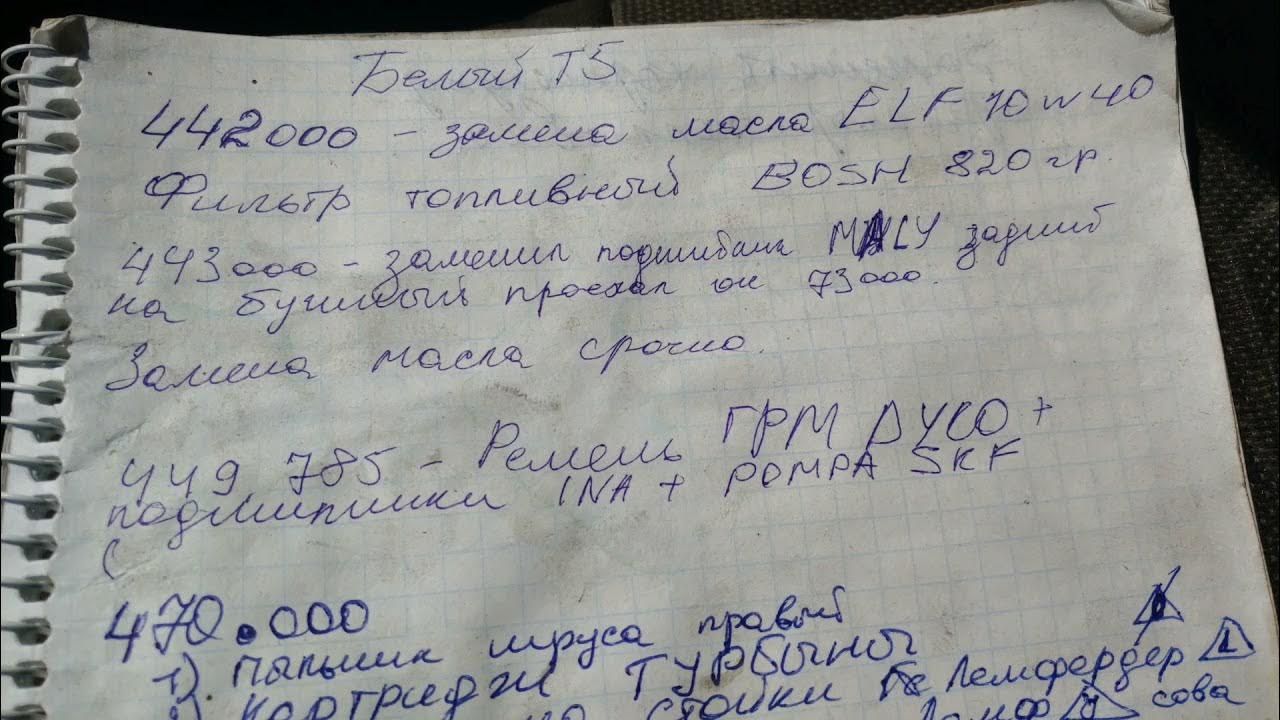 Белый Т5
442000 - замена масла ELF 10w40
Фильтр топливный BOSH 820 гр.
443000 - заменил подшибник задний
на бушный проехал он 73000.
Замена масла срочно.
449 785 - Ремень ГРМ DYCO +
подшипники INA + POMPA SKF
(
470.000
1) Пыльник шруса правый
картридж Турбины
стойки Лемфердер 1
сова